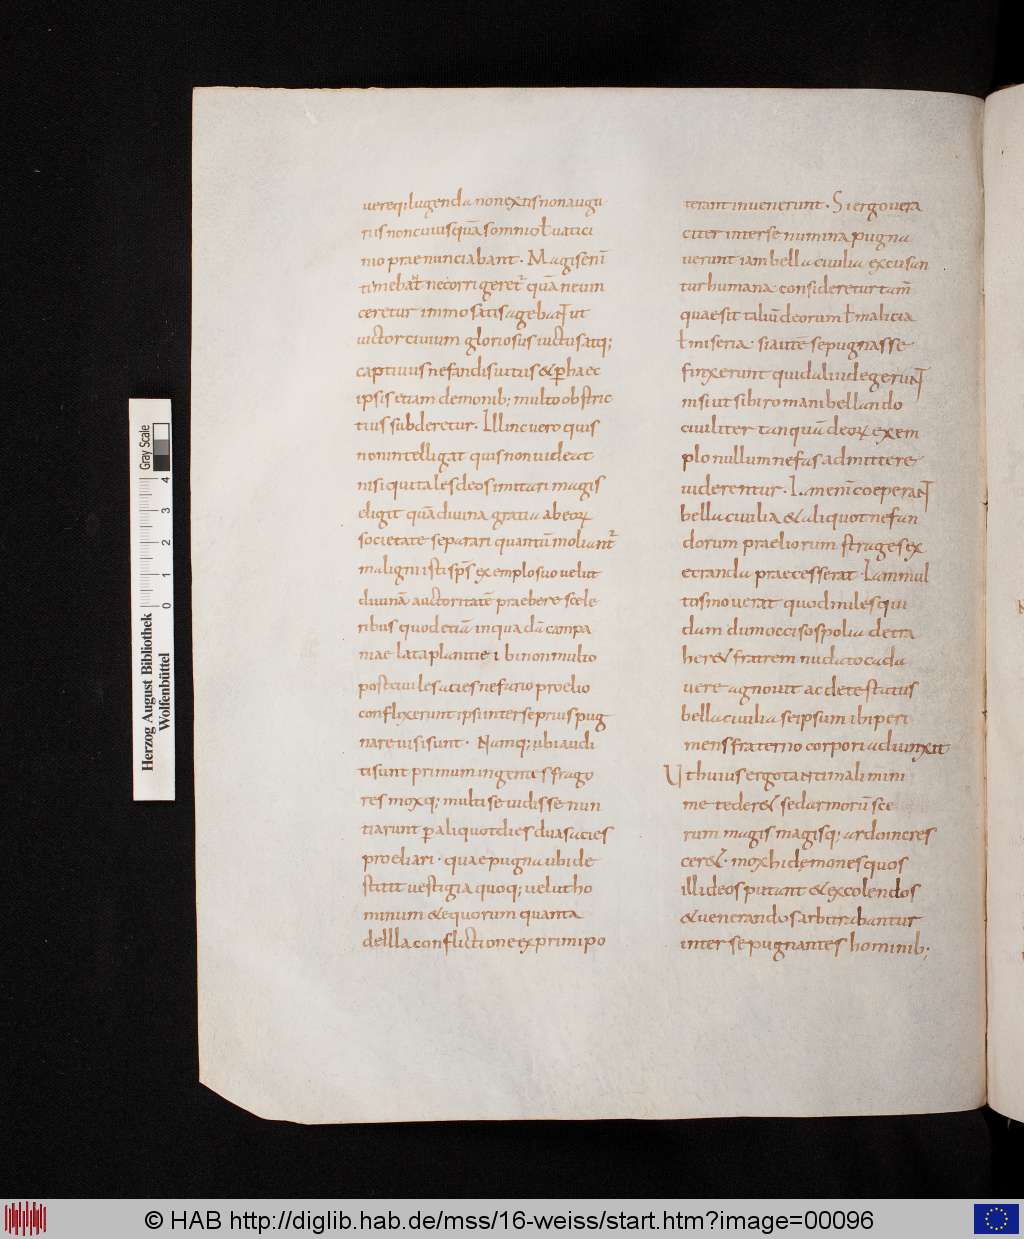 uereqilugenda non extis non augu
riis non cuiusquā somnio ł uatici
nio praenunciabant · Magis eniḿ
timebat̄ ne corrigeretr̄ quā ne uin
ceretur immo satis agebant ut
uictor ciuium gloriosus uictus atq;
captiuus nefandis uitiis & ꝑ haec
ipsis etiam demonib; multo obstric
tius subderetur · Illinc uero quis
non intelligat quis non uideat
nisi qui tales deos imitari magis
eligit quā diuina gratia ab eoꝝ
societate separari quantū moliantr̄
maligni isti sp̄s exemplo suo uelut
diuinā auctoritatē praebere scele
ribus quod etiā in quadā campa
niae lata planitie i bi non multo
post ciuiles acies nefario proelio
conflixerunt ipsi inter se prius pug
nare uisi sunt · Namq; ubi audi
ti sunt primum ingentes frago
res moxq; multi se uidisse nun
tiarunt ꝑ aliquot dies duas acies
proeliari · quae pugna ubi de
stitit uestigia quoq; uelut ho
minum & equorum quanta
dellla conflictione exprimi po
terant inuenerunt · Si ergo uera
citer inter se numina pugna
uerunt iam bella ciuilia excusan
tur humana consideretur tam̄
quae sit taliū deorum ł malicia
ł miseria · si autē se pugnasse
finxerunt quid aliud egerunt
nisi ut sibi romani bellando
ciuiliter tanquā deoꝝ exem
plo nullum nefas admittere
uiderentur · Iam enī coeperant
bella ciuilia & aliquot nefan
dorum praeliorum strages ex
ecranda praecesserat · Iam mul
tos mouerat quod miles qui
dam dum occiso spolia detra
heret fratrem nudato cada
uere agnouit ac detestatus
bella ciuilia se ipsum ibi peri
mens fraterno corpori adiunxit
Ut huius ergo tanti mali mini
me tederet sed armorū sce
rum magis magisq; ardor incres
ceret · mox hi demones quos
illi deos putant & excolendos
& uenerandos arbitrabantur
inter se pugnantes hominib;
Herzog August Bibliothek
Wolfenbüttel
Gray Scale
0 1 2 3 4
© HAB http://diglib.hab.de/mss/16-weiss/start.htm?image=00096